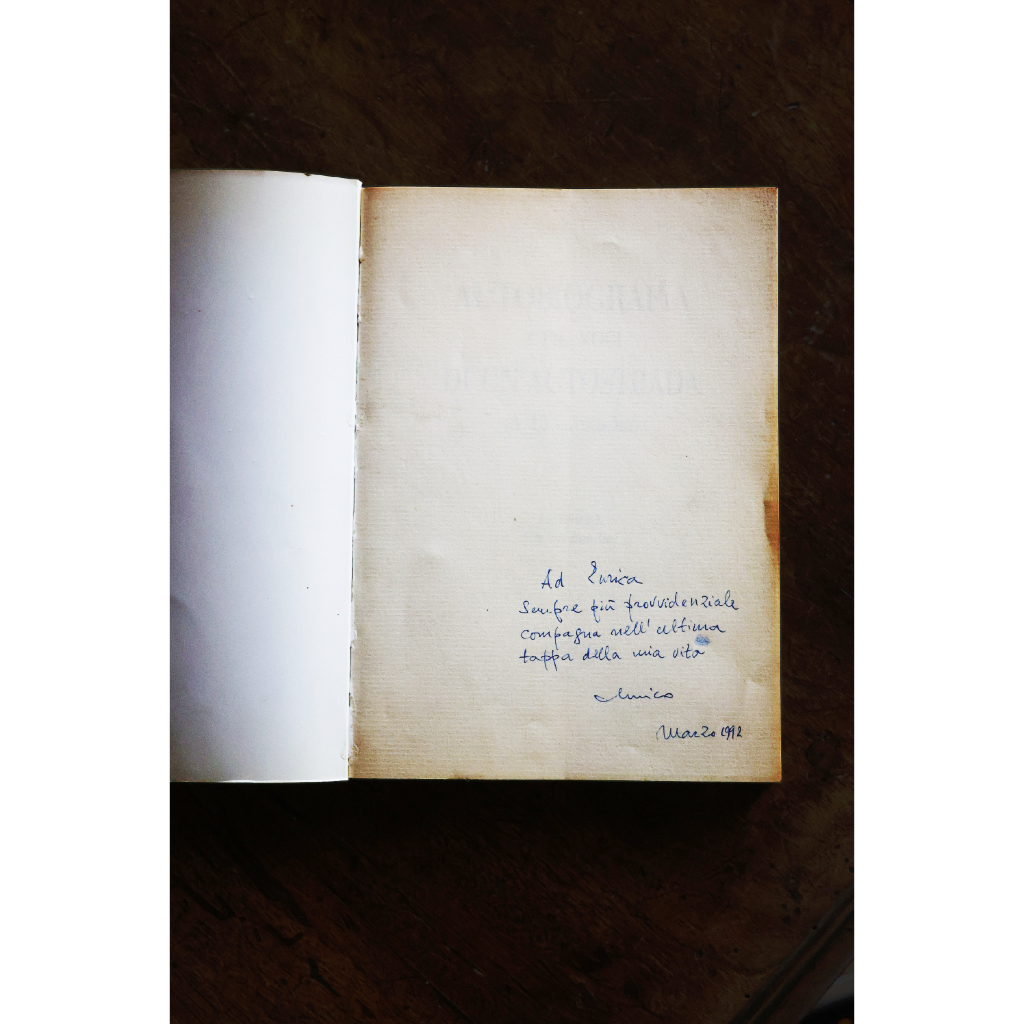 Ad Enrica
Sempre più provvidenziale
compagna nell'ultima
tappa della mia vita
Marzo 1992